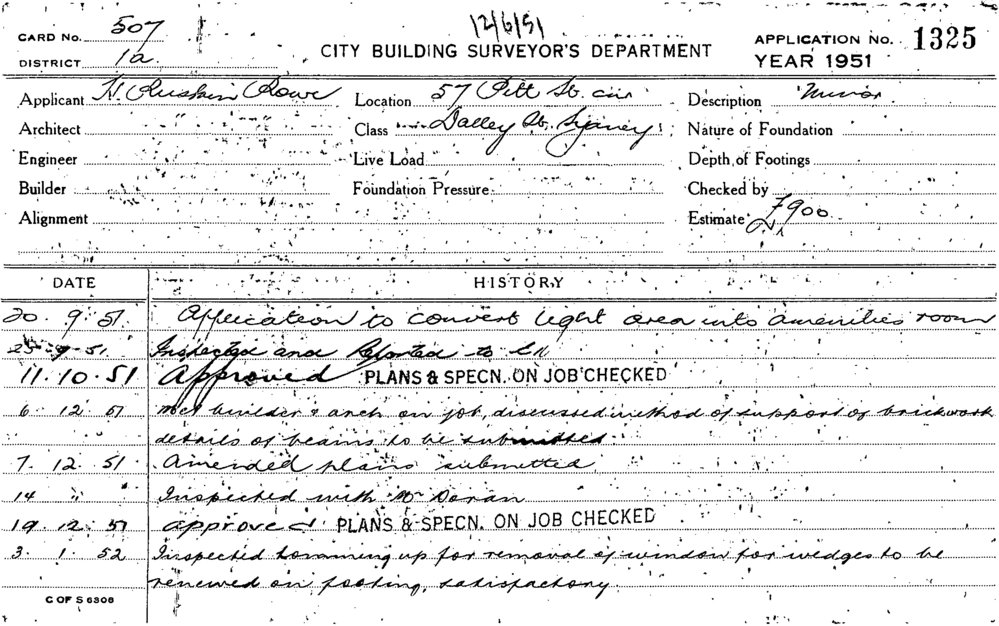 12/6/51
CARD No. 507
CITY BUILDING SURVEYOR'S DEPARTMENT
APPLICATION No. 1325
DISTRICT 1a
YEAR 1951
Applicant H. Ruskin Rowe
Location 57 Pitt St. cnr
Description Minor
Architect " " "
Class Dalley St. Sydney
Nature of Foundation
Engineer
Live Load
Depth of Footings
Builder
Foundation Pressure
Checked by
Alignment
Estimate £900
DATE HISTORY
20. 9. 51. Application to convert light area into amenities room
25. 9. 51. Inspected and Reported to
11. 10. 51 Approved PLANS & SPECN. ON JOB CHECKED
6. 12. 51 Met builder & arch on job, discussed method of support of brickwork
details of beams to be submitted
7. 12. 51 Amended plans submitted
14 " Inspected with Mr Doran
19. 12. 51 approved PLANS & SPECN. ON JOB CHECKED
3. 1. 52 Inspected tomming up for removal of window for wedges to be
renewed on footing, satisfactory.
C OF S 6306